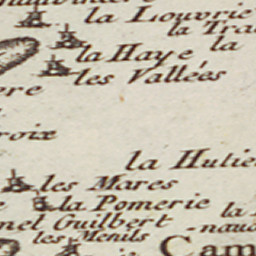 la Louvrie
la Tra
la Haye la
les Vallées
ere
roix
la Hutie
les Mares
la Pomerie
nel Guilbert la
les Menils naud
Cam